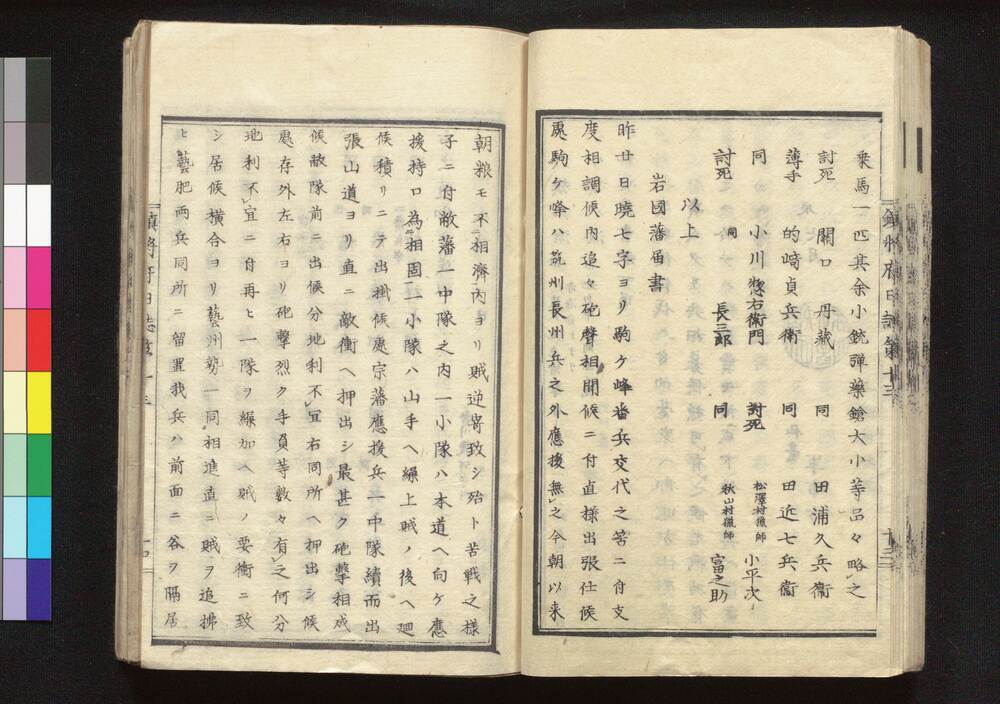 乗馬一匹其余小銃弾薬鎗大小等品々略之
討死　関口　丹蔵　同　田浦久兵衞
薄手　的﨑貞兵衛　同　田近七兵衞
同　小川惣右衛門　討死　松澤村猟師　小平次
討死　同　長三郎　同　秋山村猟師　富之助
以上
岩國藩届書
昨廿日暁七字ヨリ駒ケ峰番兵交代之筈ニ付支
度相調候内追々砲聲相聞候ニ付直様出張仕候
處駒ケ峰ハ筑州長州兵之外應援無之今朝以来
朝粮モ不相濟内ヨリ賊逆寄致シ殆ト苦戦之様
子ニ付敝藩一中隊之内一小隊ハ本道ヘ向ケ應
援持口為相固一小隊ハ山手ヘ繰上賊ノ後ヘ廻
候積リニテ出掛候處宗藩應援兵一中隊續而出
張山道ヨリ直ニ敵衝ヘ押出シ最甚ク砲撃相成
候敝隊前ニ出候分地利不宜右同所ヘ押出シ候
處存外左右ヨリ砲撃烈ク手負等數々有之何分
地利不宜ニ付再ヒ一隊ヲ繰加ヘ賊ノ要衝ニ致
シ居候横合ヨリ藝州勢一同相進直ニ賊ヲ追拂
ヒ藝肥両兵同所ニ留置我兵ハ前面ニ谷ヲ隔居